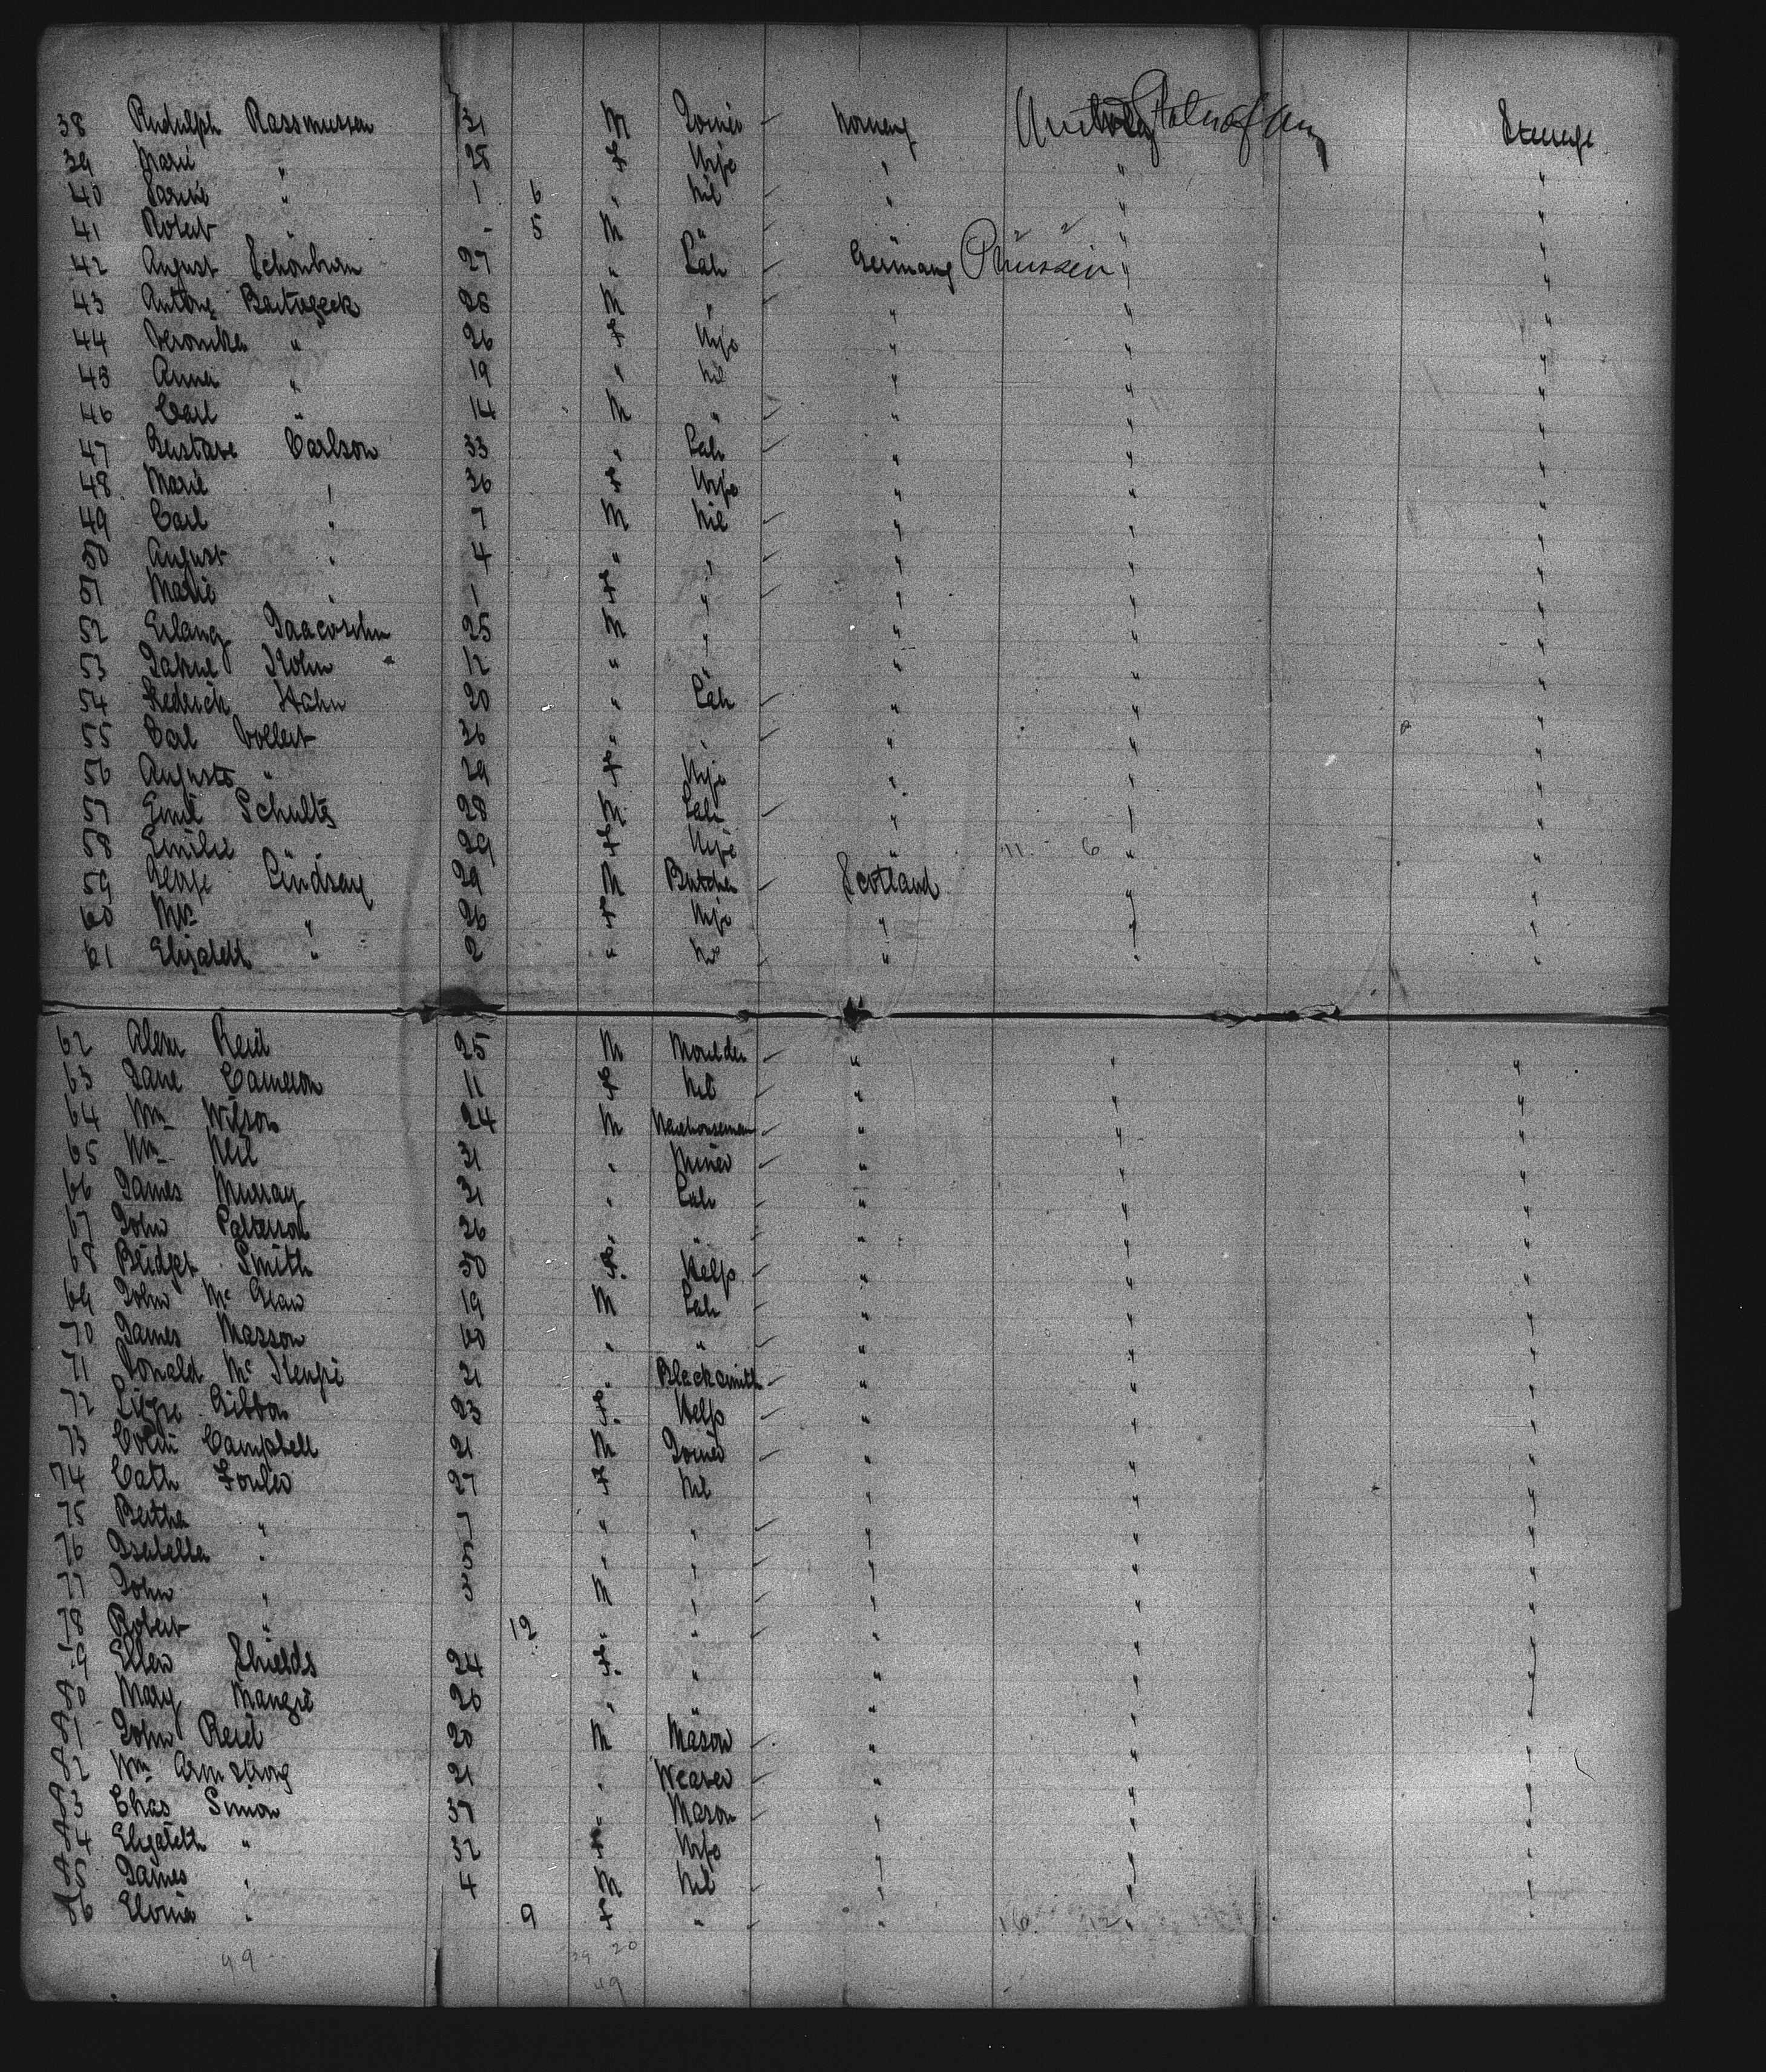 38 Rudulph Rassmussen 31 M Joiner Norway United States of Am Steerage
39 Marie " 28 F Wife " " "
40 " 1 6 " Nil " " "
41 Robert " - 5 M " " " "
42 August Schönbrun 27 " Lab Germany Prüssein " "
43 Antony 28 M " " " "
44 Veronika " 26 F Wife " " "
45 Anna " 19 " Nil " " "
46 Carl " 14 M " " " "
47 Gustave Carlson 33 " Lab " " "
48 Marie " 36 F Wife " " "
49 Carl " 7 M Nil " " "
50 August " 4 " " " " "
51 Marie " 1 F " " " "
52 25 M " " " "
53 Kohn 12 " " " " "
54 Fredrich Hahn 20 " Lab " " "
55 Carl Vollert 36 " " " " "
56 Augusta " 29 F Wife " " "
57 Emil Schults 28 M Lab " " "
58 Emilie " 29 F Wife " 11 6 " "
59 George Lindsay 29 M Butcher Scotland " "
60 Mrs " 26 F Wife " " "
61 Elizabeth " 2 " Nil " " "
62 Alexr Reid 25 M Moulder " " "
63 Jane Cameron 11 F Nil " " "
64 Wm Wilson 24 M Warehouseman " " "
65 Wm Neil 31 " Miner " " "
66 James Murray 31 " Lab " " "
67 John Patterson 26 " " " " "
68 Bridget Smith 50 F. Help " " "
69 John Mc 19 M Lab " " "
70 James Masson 60 " " " " "
71 Donald Mc 21 " Blacksmith " " "
72 Lizzie Gibbon 23 F. Help " " "
73 Colin Campbell 21 M Joiner " " "
74 Cath Fowler 27 F Nil " " "
75 Bertha " 7 " " " " "
76 Isabella " 5 " " " " "
77 John " 3 M " " " "
78 Robert " 12 " " " " "
79 Ellen Shields 24 F. " " " "
80 Mary 26 " " " " "
81 John Reid 20 M Mason " " "
82 Wm Armstrong 21 " Weaver " " "
83 Chas Simon 37 " Mason " " "
84 Elizabeth " 32 F Wife " " "
85 James " 4 M Nil " " "
86 " 9 F " " 16 12 " "
49 29 20
49